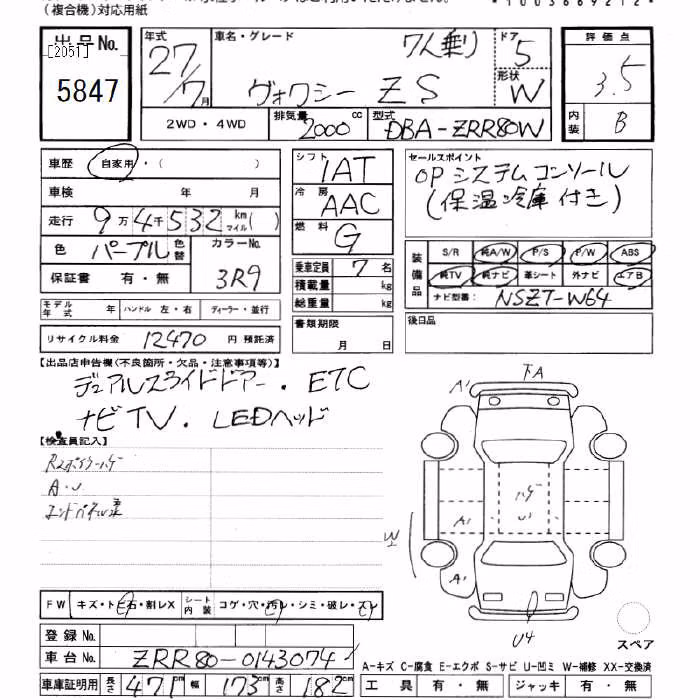 (複合機)対応用紙
*1003669212*
出品No.
[2051]
5847
年式 27/7月
車名・グレード 7人乗り
ヴォクシー ZS
ドア 5
形状 W
評価点 3.5
内装 B
2WD・4WD
排気量 2000cc
型式 DBA-ZRR80W
車歴 自家用・( )
車検 年 月
走行 9万4千532km マイル( )
色 パープル 色替
カラーNo. 3R9
保証書 有・無
モデル年式 年 ハンドル 左・右 ディーラー・並行
リサイクル料金 12470 円 預託済
シフト IAT
冷房 AAC
燃料 G
乗車定員 7名
積載量 kg
総重量 kg
書類期限 月 日
セールスポイント
OPシステムコンソール
(保温冷庫付き)
装備品
S/R 純A/W P/S P/W ABS
純TV 純ナビ 革シート 外ナビ エアB
ナビ型番: NSZT-W64
後日品
【出品店申告欄(不良箇所・欠品・注意事項等)】
デュアルスライドドアー・ETC
ナビTV・LEDヘッド
【検査員記入】
A・U
FW キズ・トビ石・割レX
シート内装 コゲ・穴・汚レ・シミ・破レ・スレ
登録No.
車台No. ZRR80-0143074
車庫証明用 長さ 471cm 幅 173cm 高さ 182cm
A' 下A
ハゲ
A' U'
W
A'
U4
スペア
A-キズ C-腐食 E-エクボ S-サビ U-凹ミ W-補修 XX-交換済
工具 有・無 ジャッキ 有・無